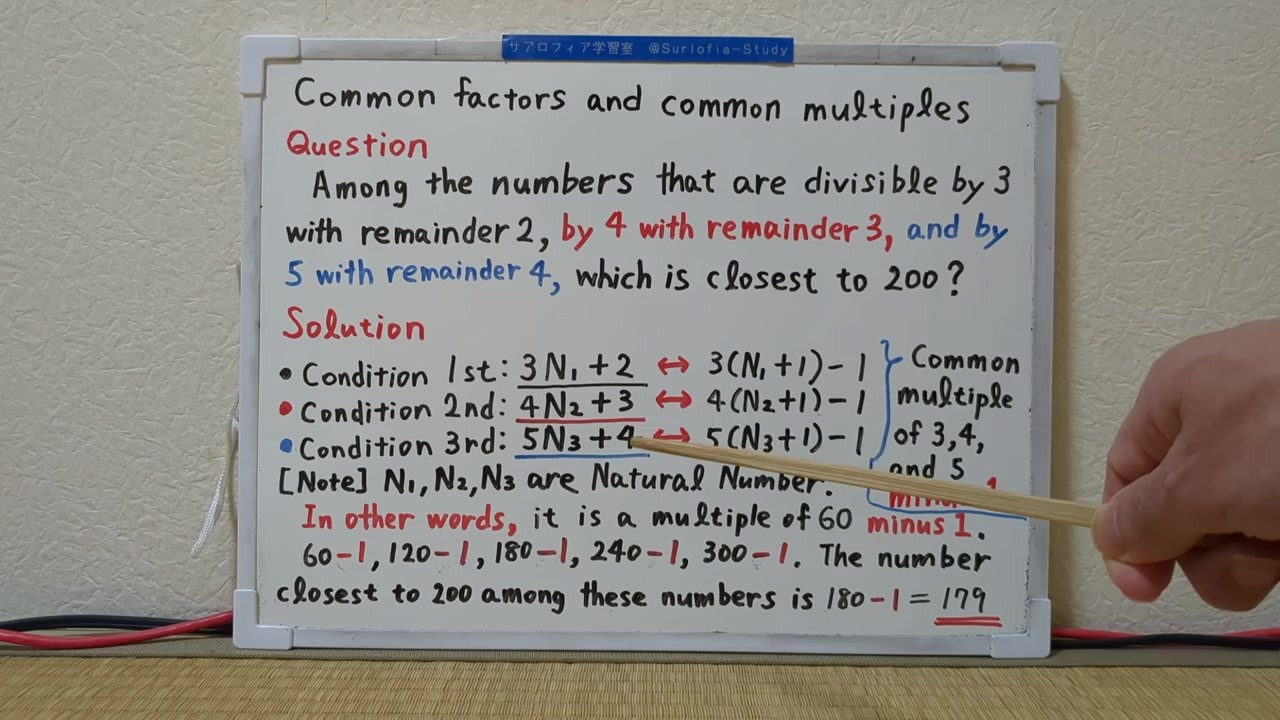 サアロフィア学習室 @Surlofia-Study
Common factors and common multiples
Question
Among the numbers that are divisible by 3
with remainder 2, by 4 with remainder 3, and by
5 with remainder 4, which is closest to 200?
Solution
• Condition 1st: 3N₁+2 ↔ 3(N₁+1)-1
• Condition 2nd: 4N₂+3 ↔ 4(N₂+1)-1
• Condition 3rd: 5N₃+4 ↔ 5(N₃+1)-1
Common
multiple
of 3,4,
and 5
[Note] N₁, N₂, N₃ are Natural Number.
In other words, it is a multiple of 60 minus 1.
60-1, 120-1, 180-1, 240-1, 300-1. The number
closest to 200 among these numbers is 180-1 = 179